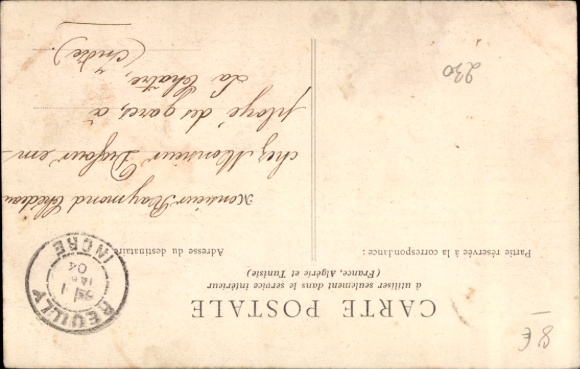 CARTE POSTALE
à utiliser seulement dans le service intérieur
(France, Algérie et Tunisie)
Partie réservée à la correspondance :
Adresse du destinataire
REUILLY
04
INDRE
Monsieur Raymond
chez Monsieur Dufour em-
ployé des gares, à
La Châtre,
(Indre).
230
8 €